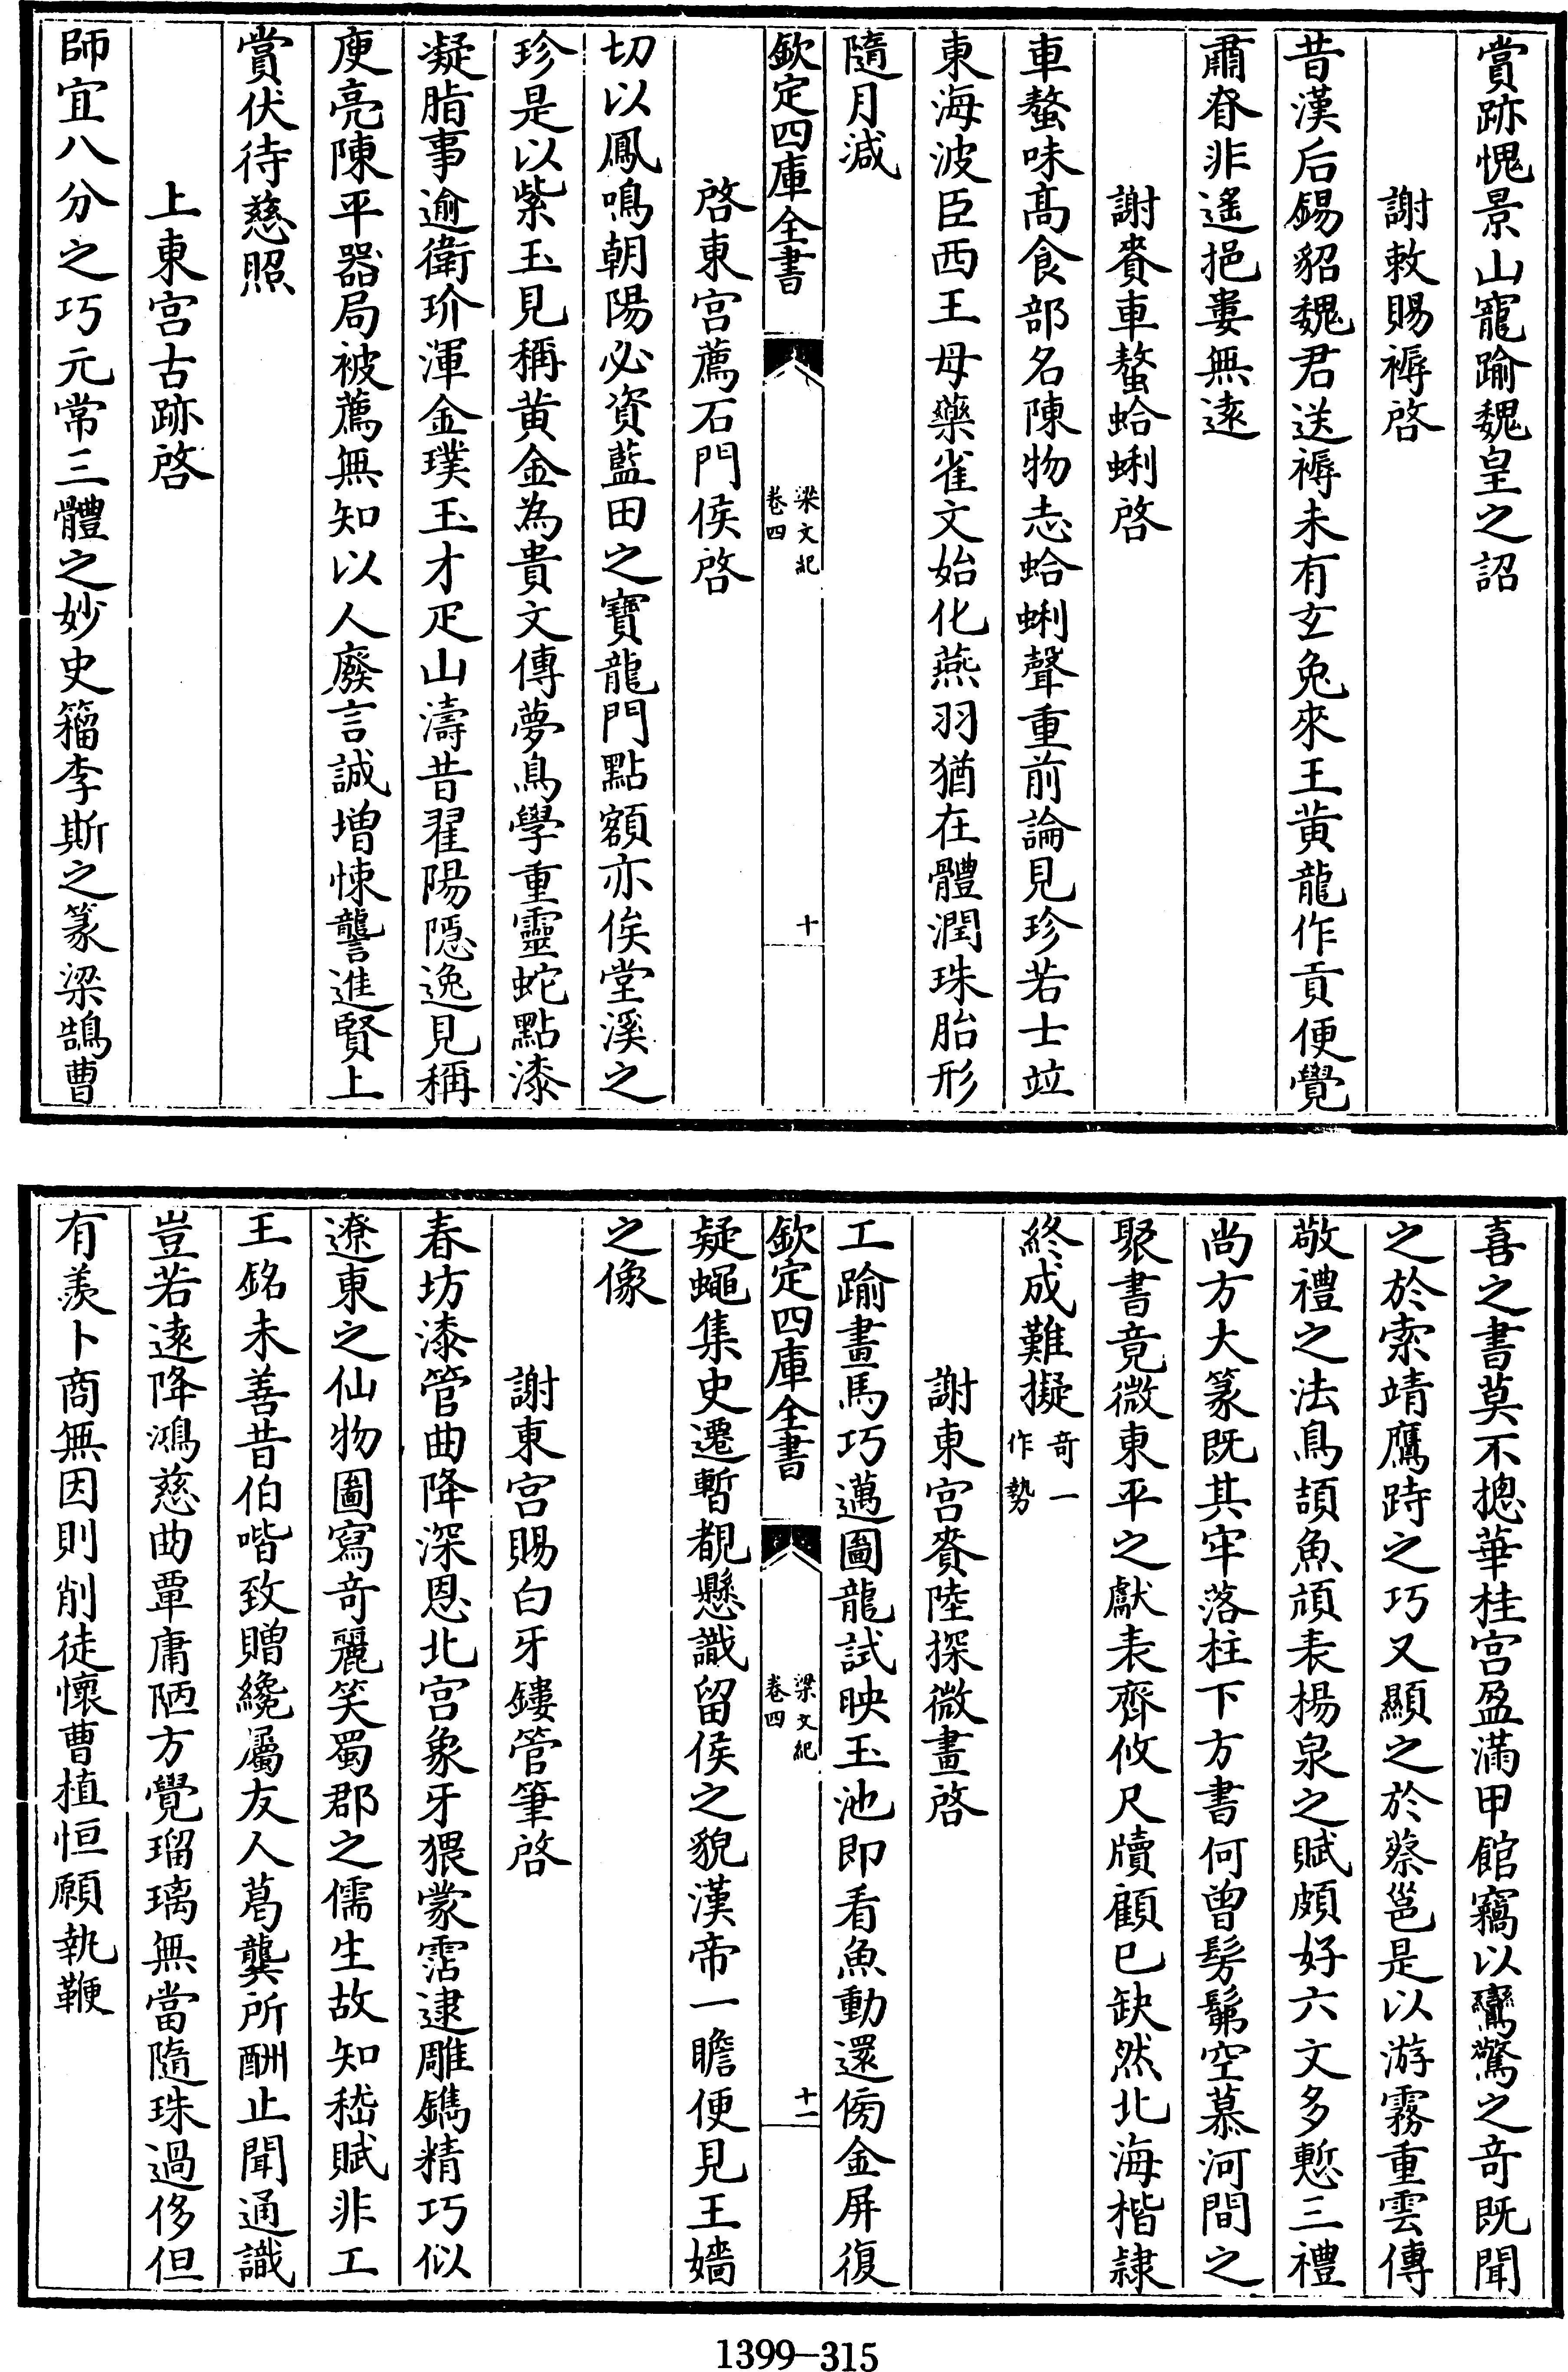 賞跡愧景山寵踰魏皇之詔
謝敕賜褥啓
昔漢后錫貂魏君送褥未有玄兔來王黄龍作貢便覺
肅脊非遥挹婁無遠
謝賚車螯蛤蜊啓
車螯味高食部名陳物志蛤蜊聲重前論見珍若士竝
東海波臣西王母藥雀文始化燕羽猶在體潤珠胎形
隨月減
欽定四庫全書
梁文紀
卷四
十
啓東宫薦石門侯啓
切以鳳鳴朝陽必資藍田之寶龍門點額亦俟堂溪之
珍是以紫玉見稱黄金為貴文傳夢鳥學重靈蛇點漆
凝脂事逾衛玠渾金璞玉才疋山濤昔翟陽隠逸見稱
庾亮陳平器局被薦無知以人廢言誠增悚讋進賢上
賞伏待慈照
上東宫古跡啓
師宜八分之巧元常三體之妙史籀李斯之篆梁鵠曹
喜之書莫不摠華桂宫盈滿甲館竊以鸞驚之奇既聞
之於索靖鷹跱之巧又顯之於蔡邕是以游霧重雲傳
敬禮之法鳥頡魚頏表楊泉之賦頗好六文多慙三禮
尚方大篆既其牢落柱下方書何曾髣髴空慕河間之
聚書竟微東平之獻表齊攸尺牘顧已缺然北海楷隸
終成難擬奇一作勢
謝東宫賚陸探微畫啓
工踰畫馬巧邁圖龍試映玉池即看魚動還傍金屏復
欽定四庫全書
梁文紀
卷四
十一
疑蠅集史遷暫覩懸識留侯之貌漢帝一瞻便見王嬙
之像
謝東宫賜白牙鏤管筆啓
春坊漆管曲降深恩北宫象牙猥蒙霑逮雕鐫精巧似
遼東之仙物圖寫奇麗笑蜀郡之儒生故知嵇賦非工
王銘未善昔伯喈致贈纔屬友人葛龔所酬止聞通識
豈若遠降鴻慈曲覃庸陋方覺瑠璃無當隨珠過侈但
有羨卜商無因則削徒懷曹植恒願執鞭
1399-315